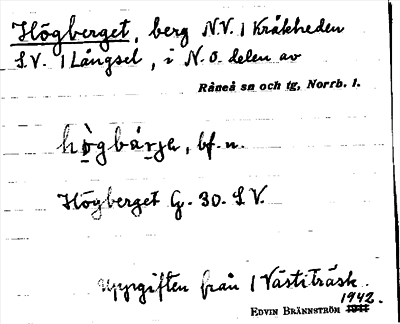 Högberget, berg N.V. / Kråkheden
S.V. / Långsel, i N.O. delen av
Råneå sn och tg, Norrb. l.
högbárja, bf. n.
Högberget G. 30. S.V.
uppgiften från / Västiträsk.
1942.
EDVIN BRÄNNSTRÖM 1941